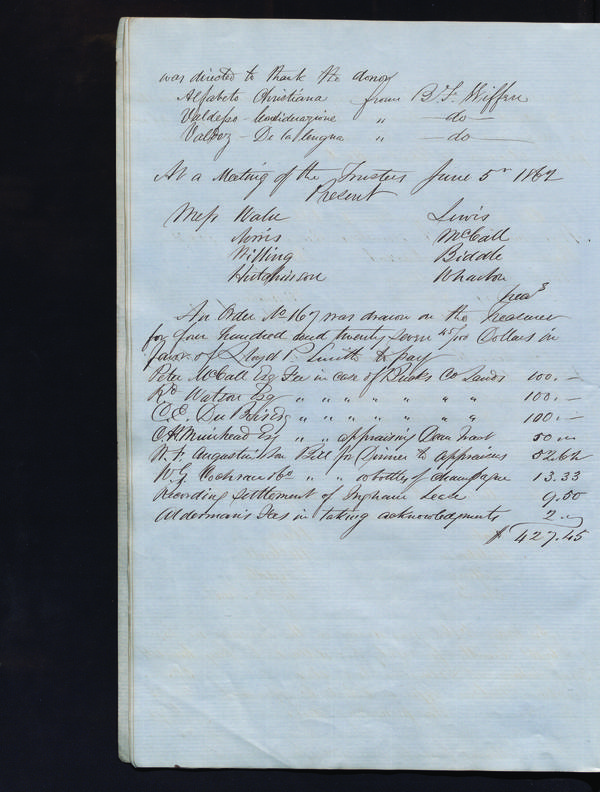 was directed to thank the donor
Alfabeto Christiano from B. F. Wiffen
Valdesso - Considerazione " - do -
Valdez - De la Lengua " - do -
At a Meeting of the Trustees June 5th 1862
Present
Mess Waln Lewis
Norris McCall
Willing Biddle
Hutchinson Wharton
Treas
An Order No 167 was drawn on the Treasurer
for four hundred and twenty seven 45/100 Dollars in
favor of Lloyd P. Smith to pay
Peter McCall Esq Fee in case of Bucks Co Lands 100.—
Watson Esq " " " " " " " 100.—
C. E. Du Bois Esq " " " " " " " 100.—
Muirhead Esq " " appraising 50.
Augustin Bill for Dinner to appraisers 52.62
W. G. Cochran & Co " " bottles of champagne 13.33
Recording Settlement of Ingham 9.50
Alderman's Fees in taking acknowledgments 2.
$ 427.45